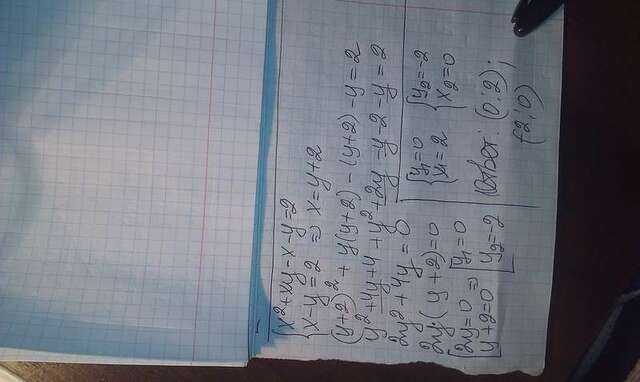 {x²+xy-x-y=2
{x-y=2 => x=y+2
(y+2)²+y(y+2)-(y+2)-y=2
y²+4y+4+y²+2y-y-2-y=2
2y²+4y=0
2y(y+2)=0
[2y=0 => [y₁=0
[y+2=0 [y₂=-2
{y₁=0 {y₂=-2
{x₁=2 {x₂=0
Ответ: (0;2);
(-2;0)